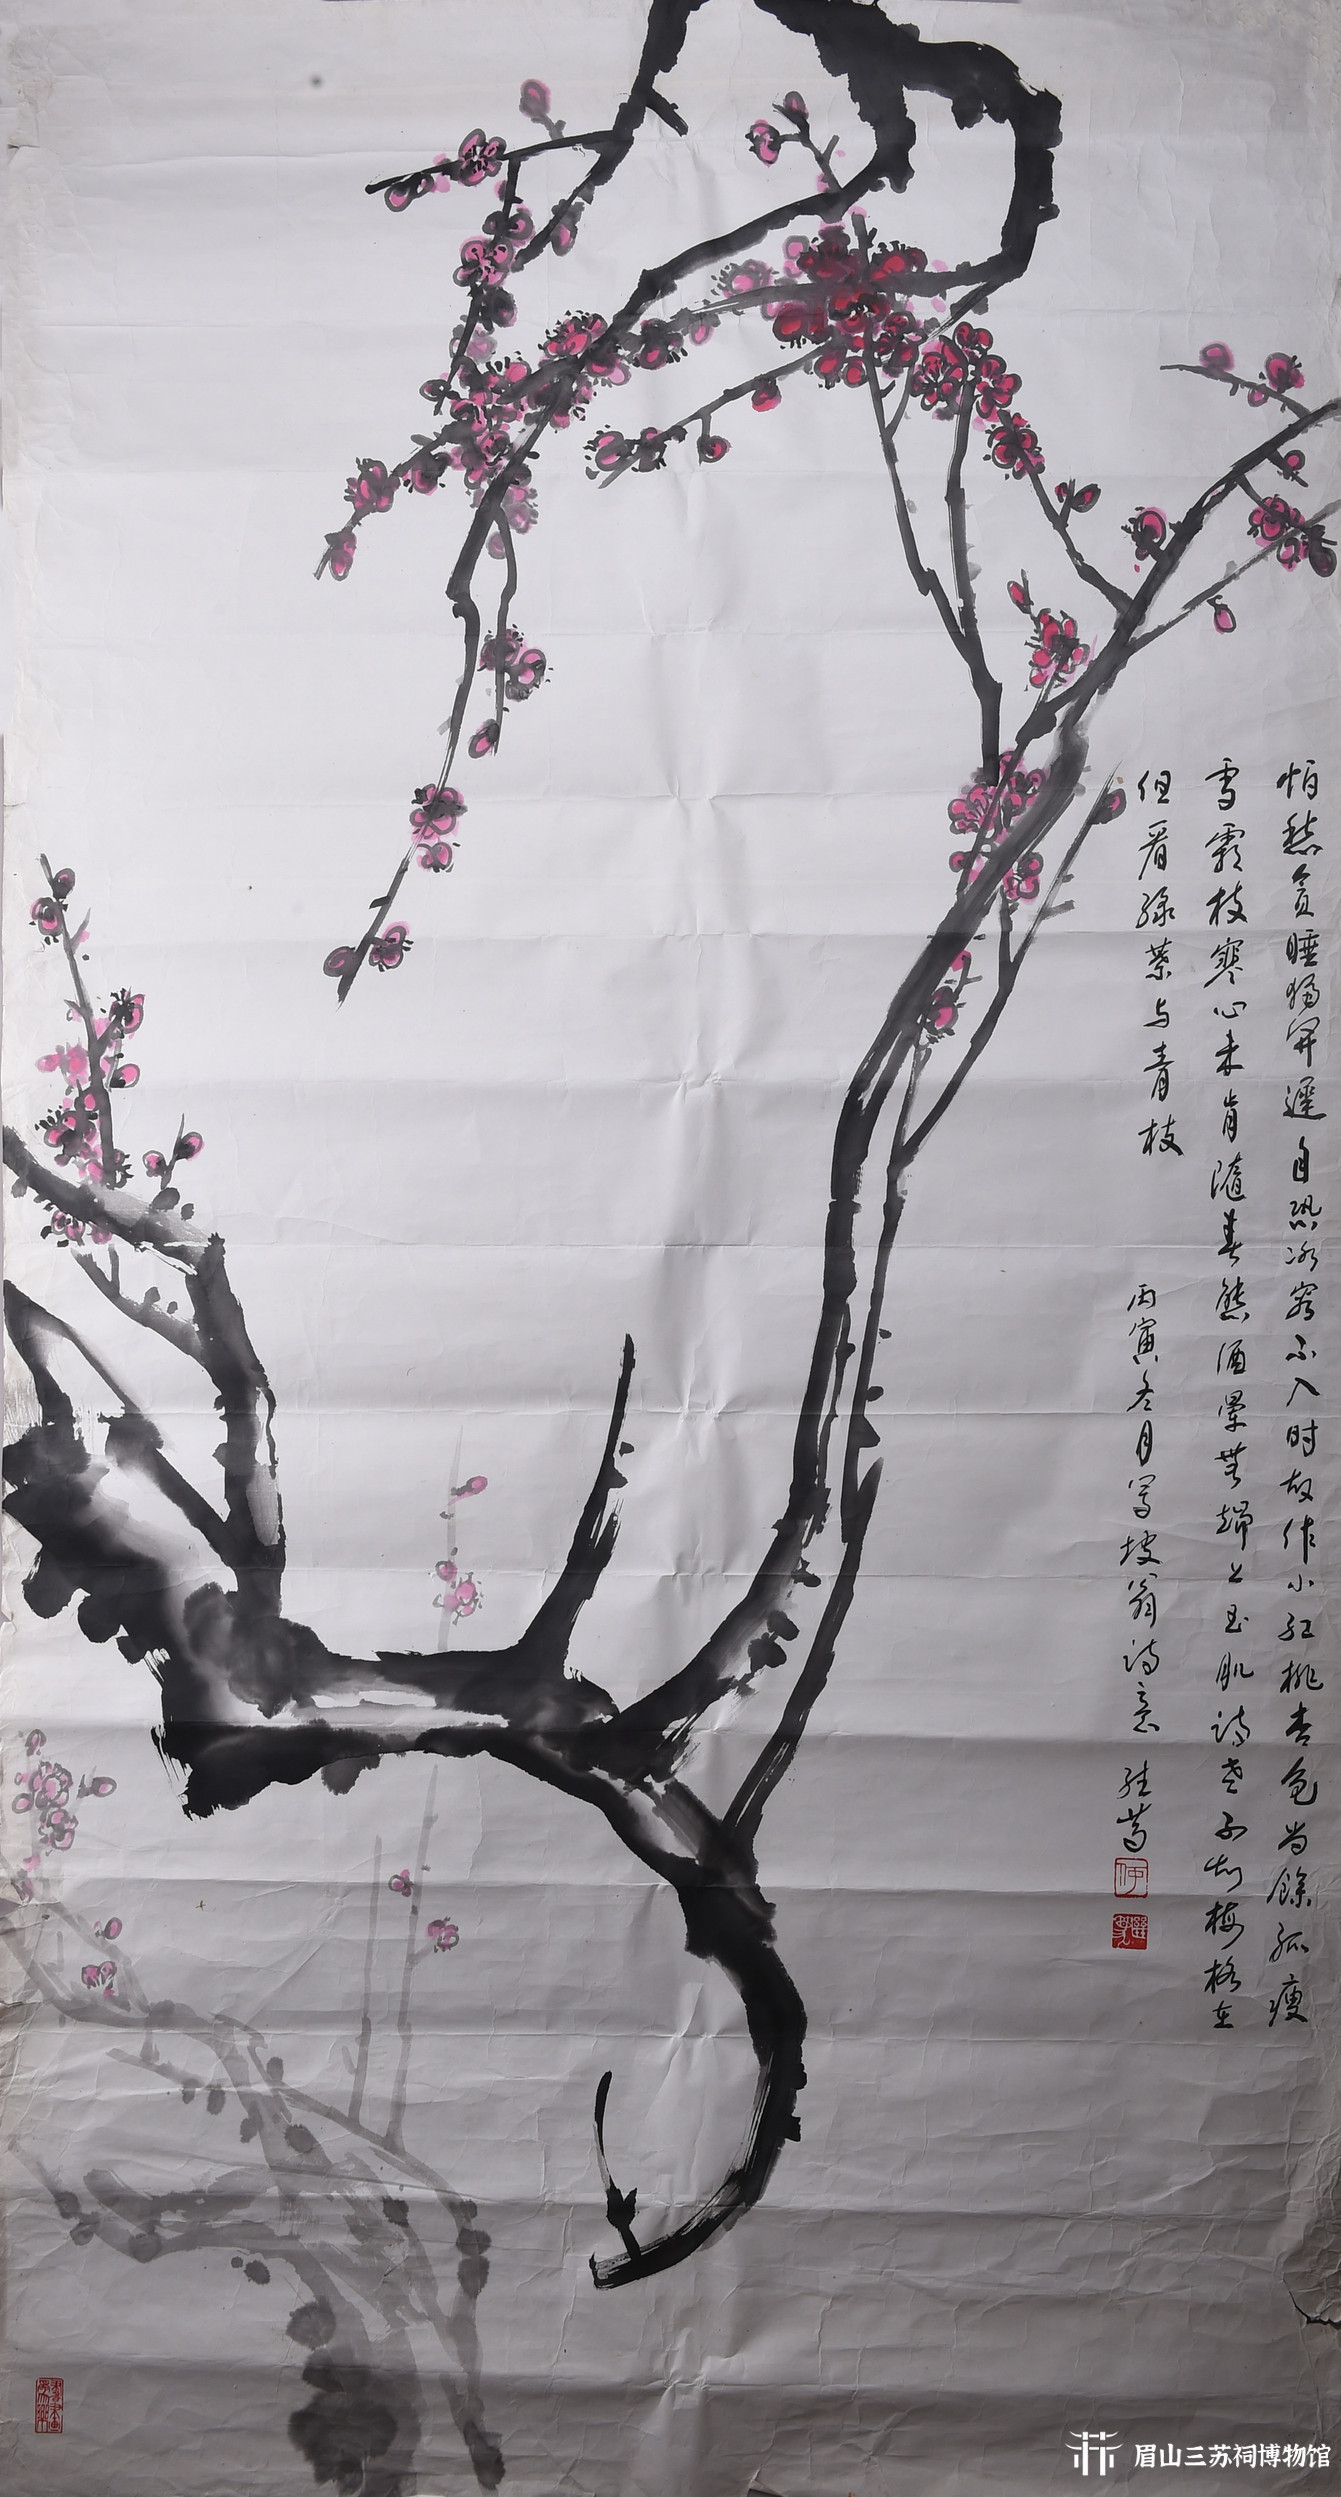 怕愁贪睡独开遲自恐冰容不入时故作小红桃杏色尚馀孤瘦
雪霜枝寒心未肯随春态酒晕无端上玉肌诗老不知梅格在
但看绿葉与青枝
丙寅冬月写坡翁诗意
眉山三苏祠博物馆